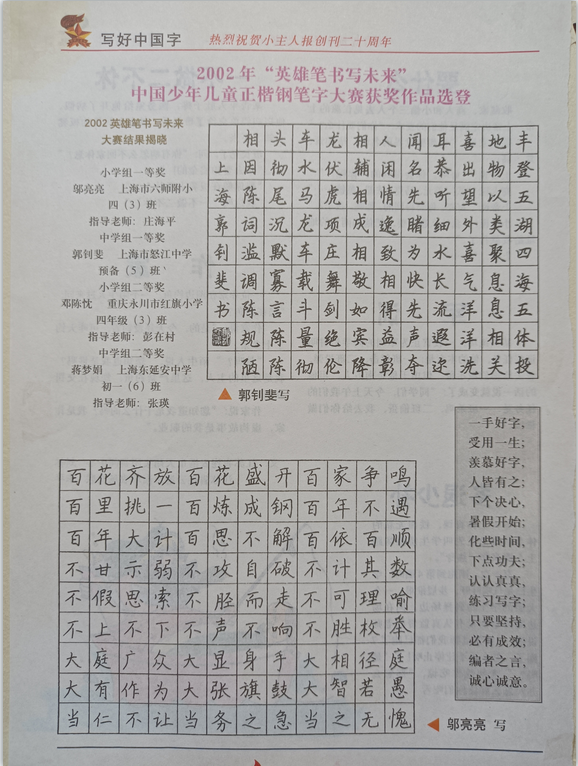 写好中国字
热烈祝贺小主人报创刊二十周年
2002年“英雄笔书写未来”
中国少年儿童正楷钢笔字大赛获奖作品选登
2002英雄笔书写未来
大赛结果揭晓
小学组一等奖
邬亮亮 上海市六师附小
四（3）班
指导老师：庄海平
中学组一等奖
郭钊斐 上海市怒江中学
预备（5）班
小学组二等奖
邓陈忱 重庆永川市红旗小学
四年级（3）班
指导老师：彭在村
中学组二等奖
蒋梦娟 上海东延安中学
初一（6）班
指导老师：张瑛
丰登五湖四海五体投
地物以类聚息息相关
喜出望外喜气洋洋洗
耳恭听细水长流遐迩
闻名先睹为快先声夺
人闲情逸致相得益彰
相辅相成相敬如宾降
龙伏虎项庄舞剑绝伦
车水马龙车载斗量彻
头彻尾沉默寡言陈陈
相因陈词滥调陈规陋
上海郭钊斐书
郭钊斐写
一手好字，
受用一生；
羡慕好字，
人皆有之；
下个决心，
暑假开始；
化些时间，
下点功夫；
认认真真，
练习写字；
只要坚持，
必有成效；
编者之言，
诚心诚意。
百花齐放百花盛开百家争鸣
百里挑一百炼成钢百年不遇
百年大计百思不解百依百顺
不甘示弱不攻自破不计其数
不假思索不胫而走不可理喻
不上不下不声不响不胜枚举
大庭广众大显身手大相径庭
大有作为大张旗鼓大智若愚
当仁不让当务之急当之无愧
邬亮亮 写